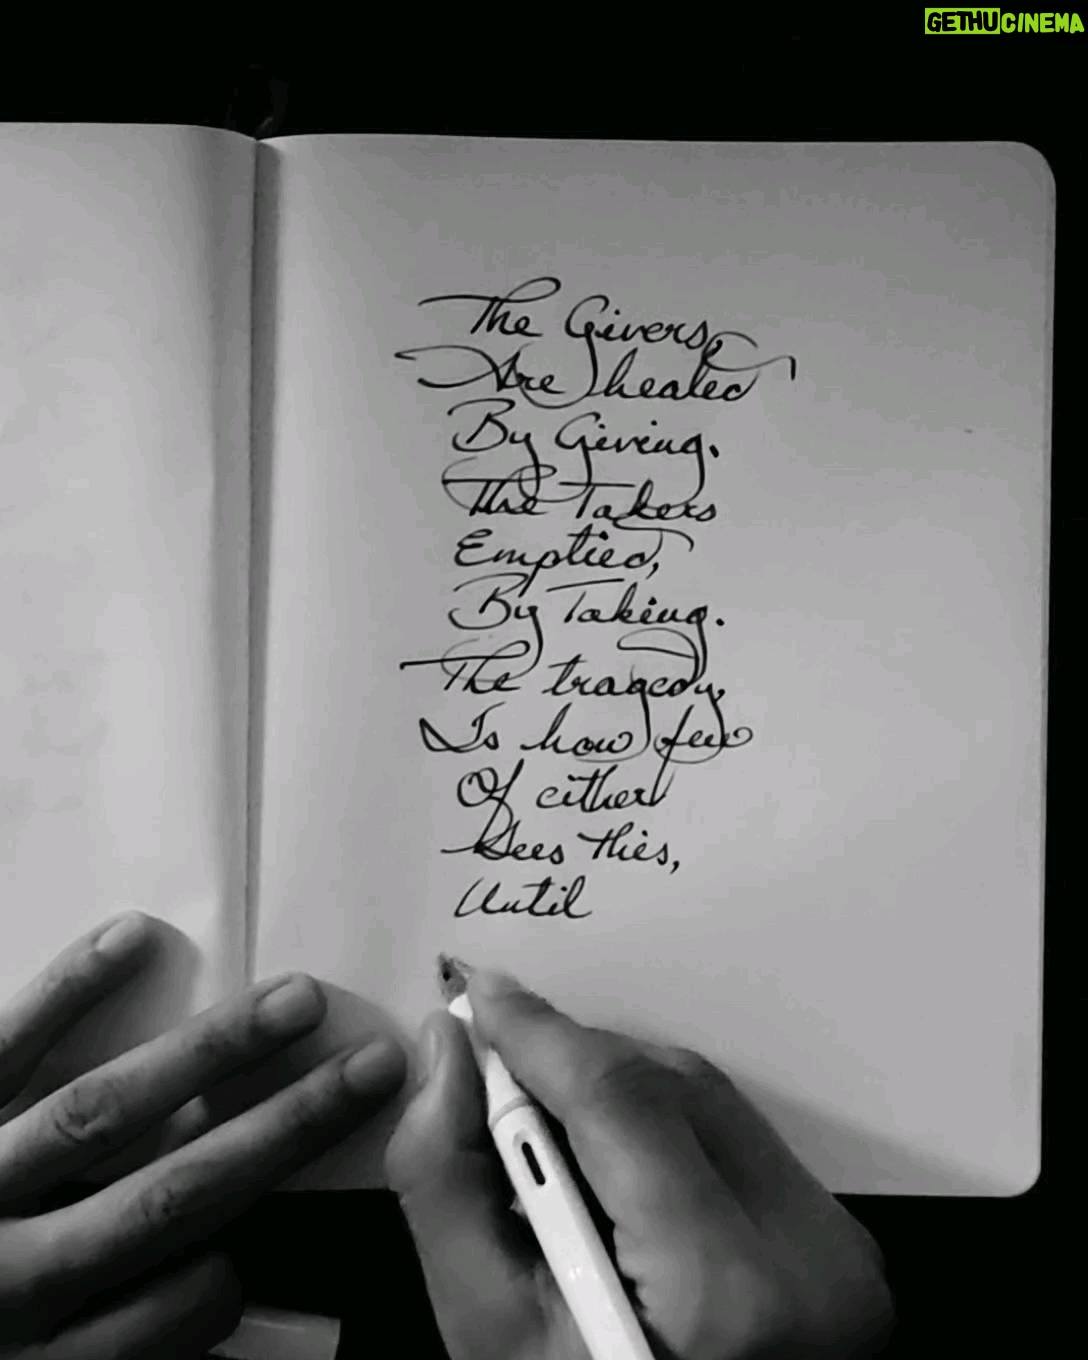 GETHUCINEMA
The Givers,
Are healed
By Giving.
The Takers
Emptied,
By Taking.
The tragedy,
Is how few
Of either
Sees this,
Until